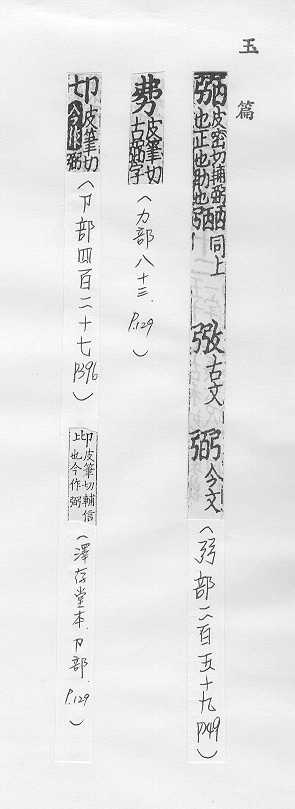 玉篇
皮密切輔弼也正也助也 同上 古文 弼今文(弜部二百五十九 P249)
皮筆切古弼字(力部八十三. P.129)
皮筆切今作弼(卩部四百二十七 P396) 皮筆切輔信也今作弼(澤存堂本.卩部. P.129)